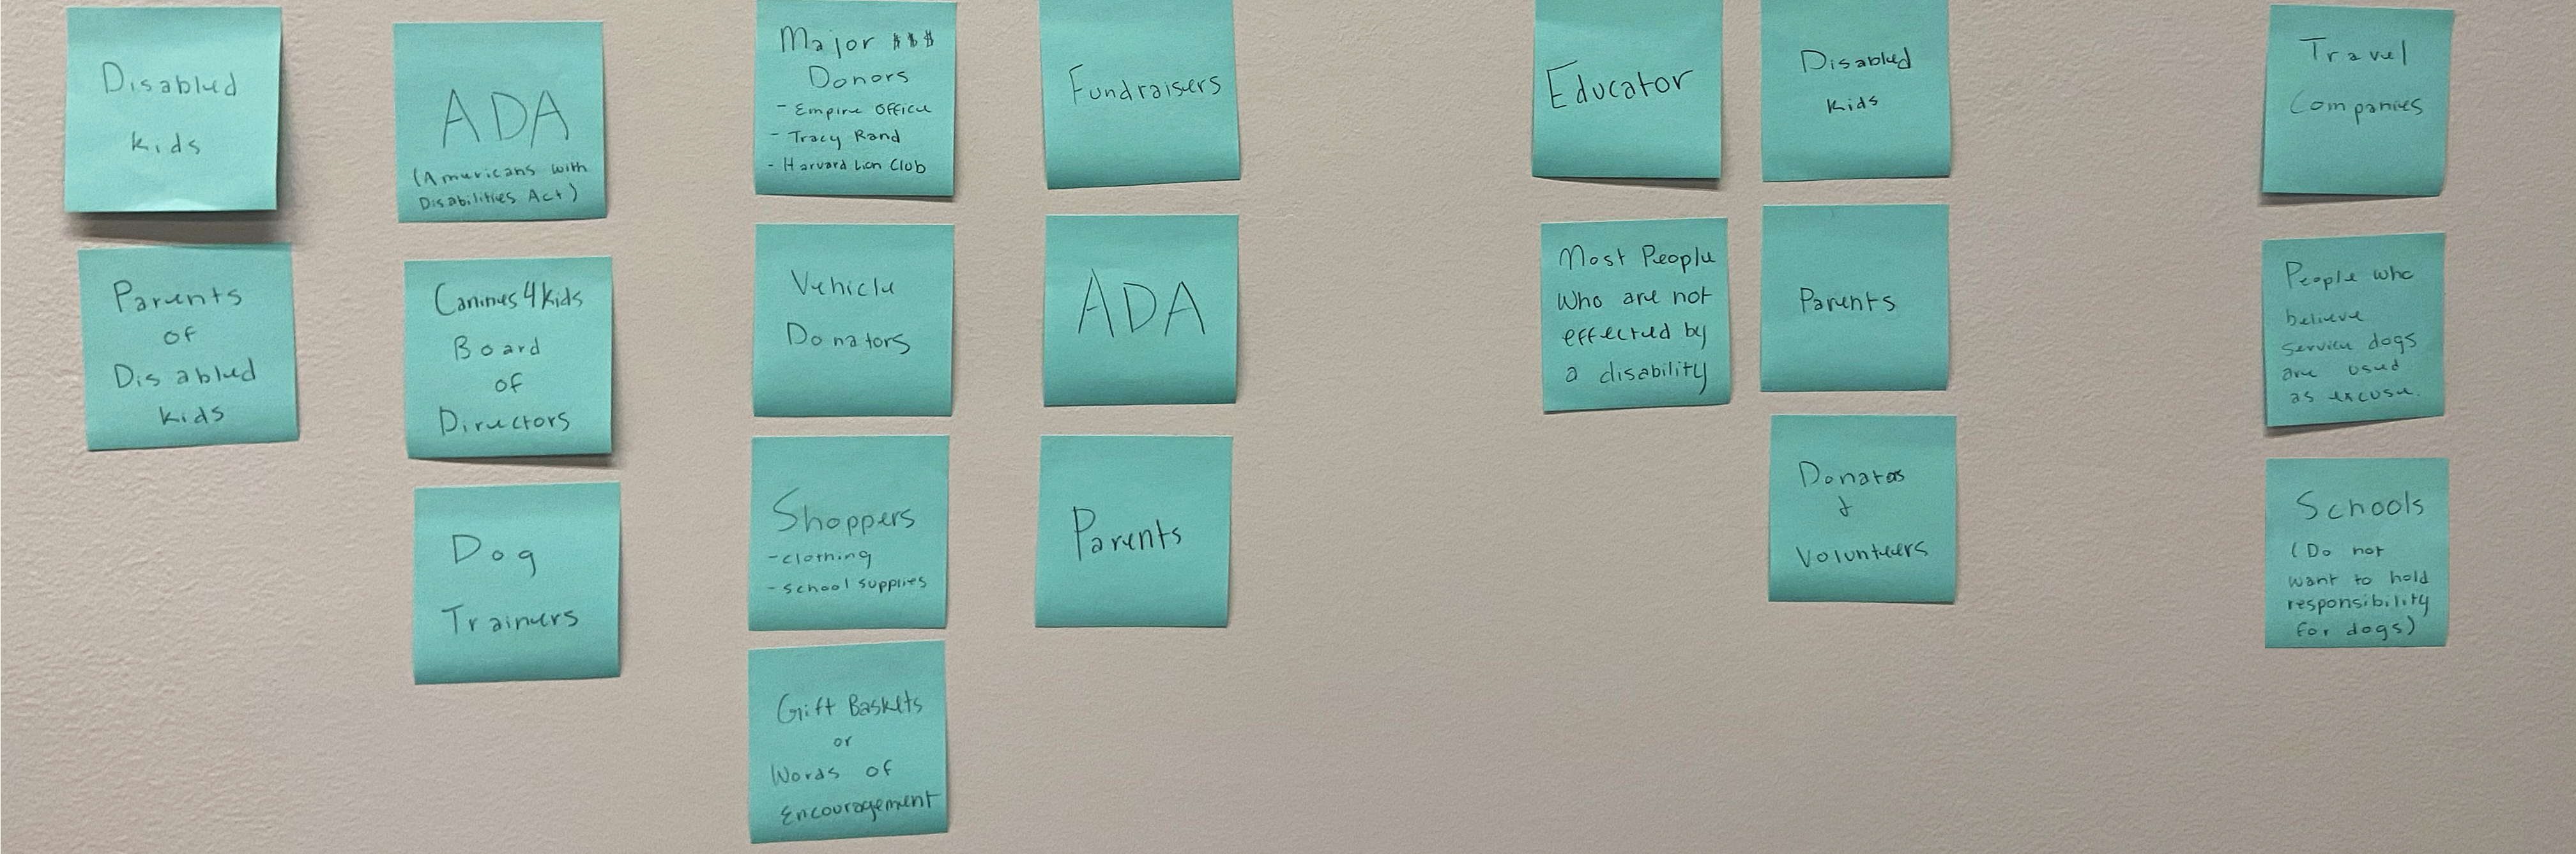 Disabled
kids
Parents
of
Disabled
kids
ADA
(Americans with
Disabilities Act)
Canines4kids
Board
of
Directors
Dog
Trainers
Major $$$
Donors
- Empire Office
- Tracy Rand
- Harvard Lion Club
Vehicle
Donators
Shoppers
- clothing
- school supplies
Gift Baskets
or
Words of
Encouragement
Fundraisers
ADA
Parents
Educator
Most People
who are not
effected by
a disability
Disabled
kids
Parents
Donatos
&
Volunteers
Travel
Companies
People who
believe
service dogs
are used
as excuse.
Schools
(Do not
want to hold
responsibility
for dogs)